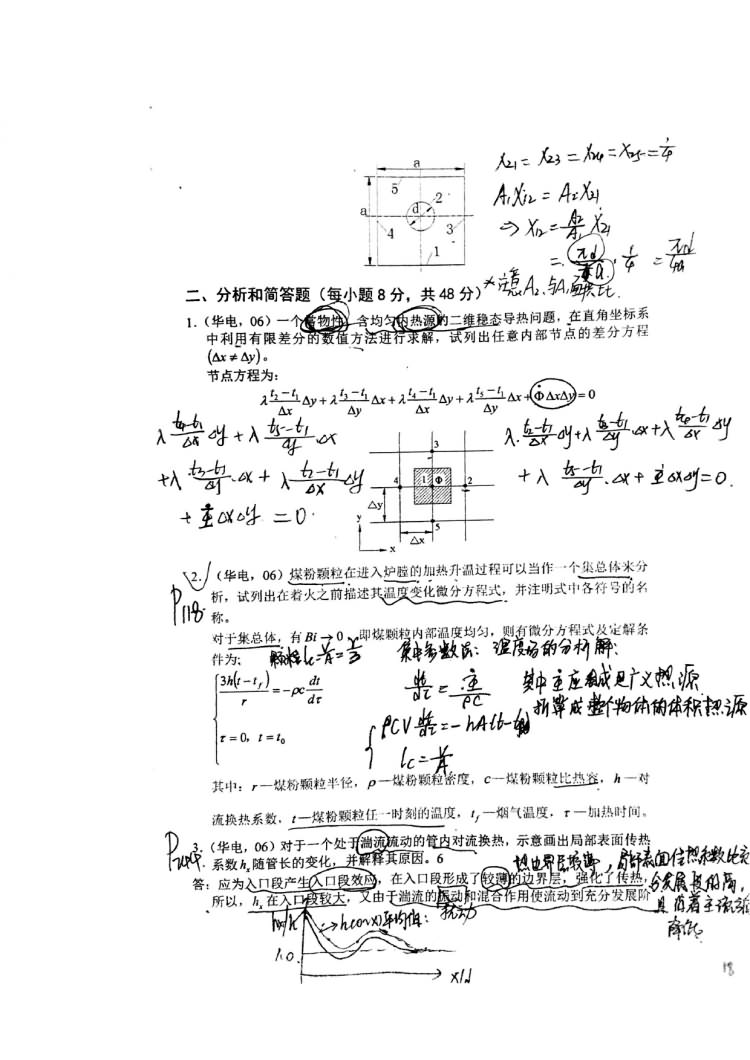 a
a
5
d
2
4
3
1
X21 = X23 = X24 = X25 = 1/4
A1X12 = A2X21
⇒ X12 = A2/A1 X21
= πd/a · 1/4 = πd/4a
*注意A2与A1
二、分析和简答题（每小题8分，共48分）
1.（华电，06）一个常物性、含均匀内热源的二维稳态导热问题，在直角坐标系
中利用有限差分的数值方法进行求解，试列出任意内部节点的差分方程
(Δx ≠ Δy)。
节点方程为：
λ (t2−t1)/Δx Δy + λ (t3−t1)/Δy Δx + λ (t4−t1)/Δx Δy + λ (t5−t1)/Δy Δx + Φ̇ΔxΔy = 0
λ (t4-t1)/Δx Δy + λ (t5-t1)/Δy ·Δx
+λ (t3-t1)/Δy ·Δx + λ (t2-t1)/Δx Δy
+ Φ̇ΔxΔy = 0
3
4
1
Φ
2
5
Δy
Δx
y
x
λ· (t2-t1)/Δx Δy + λ (t3-t1)/Δy ·Δx + λ (t4-t1)/Δx Δy
+ λ (t5-t1)/Δy ·Δx + Φ̇ΔxΔy = 0.
2.（华电，06）煤粉颗粒在进入炉膛的加热升温过程可以当作一个集总体来分
析，试列出在着火之前描述其温度变化微分方程式，并注明式中各符号的名
P118
称。
对于集总体，有 Bi → 0，即煤颗粒内部温度均匀，则有微分方程式及定解条
件为：
颗粒 lc = V/A = r/3
集中参数法：温度场的分析解：
3h(t−tf)/r = −ρc dt/dτ
τ = 0，t = t0
dt/dτ = Φ̇/ρc
其中Φ̇应看成是广义热源
折算成整个物体的体积热源
ρCV dt/dτ = -hA(t-t∞)
lc = V/A
其中：r—煤粉颗粒半径，ρ—煤粉颗粒密度，c—煤粉颗粒比热容，h—对
流换热系数，t—煤粉颗粒任一时刻的温度，tf—烟气温度，τ—加热时间。
3.（华电，06）对于一个处于湍流流动的管内对流换热，示意画出局部表面传热
系数 hx 随管长的变化，并解释其原因。6
热边界层较薄，局部表面传热系数比充
答：应为入口段产生入口段效应，在入口段形成了较薄的边界层，强化了传热，
分发展段的高，
所以，hx 在入口段较大，又由于湍流的脉动和混合作用使流动到充分发展阶
且沿着主流
降低
扰动
hx/h
h(或x)平均值：
1.0
x/d
18